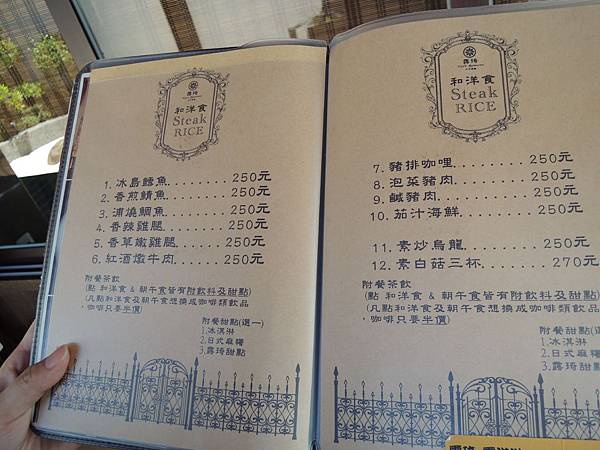 露琦
和洋食
Steak
RICE
1. 冰島鱈魚........250元
2. 香煎鯖魚........250元
3. 浦燒鯛魚........250元
4. 香辣雞腿........250元
5. 香草嫩雞腿.......250元
6. 紅酒燉牛肉.......250元
附餐茶飲
(點 和洋食 & 朝午食皆有附飲料及甜點)
(凡點和洋食及朝午食想換成咖啡類飲品
，咖啡只要半價)
附餐甜點(選一)
1.冰淇淋
2.日式麻糬
3.露琦甜點
露琦
和洋食
Steak
RICE
7. 豬排咖哩........250元
8. 泡菜豬肉........250元
9. 鹹豬肉.........250元
10. 茄汁海鮮.......250元
11. 素炒烏龍.......250元
12. 素白菇三杯......270元
附餐茶飲
(點 和洋食 & 朝午食皆有附飲料及甜點)
(凡點和洋食及朝午食想換成咖啡類飲品
，咖啡只要半價)
附餐甜點(選一)
1.冰淇淋
2.日式麻糬
3.露琦甜點